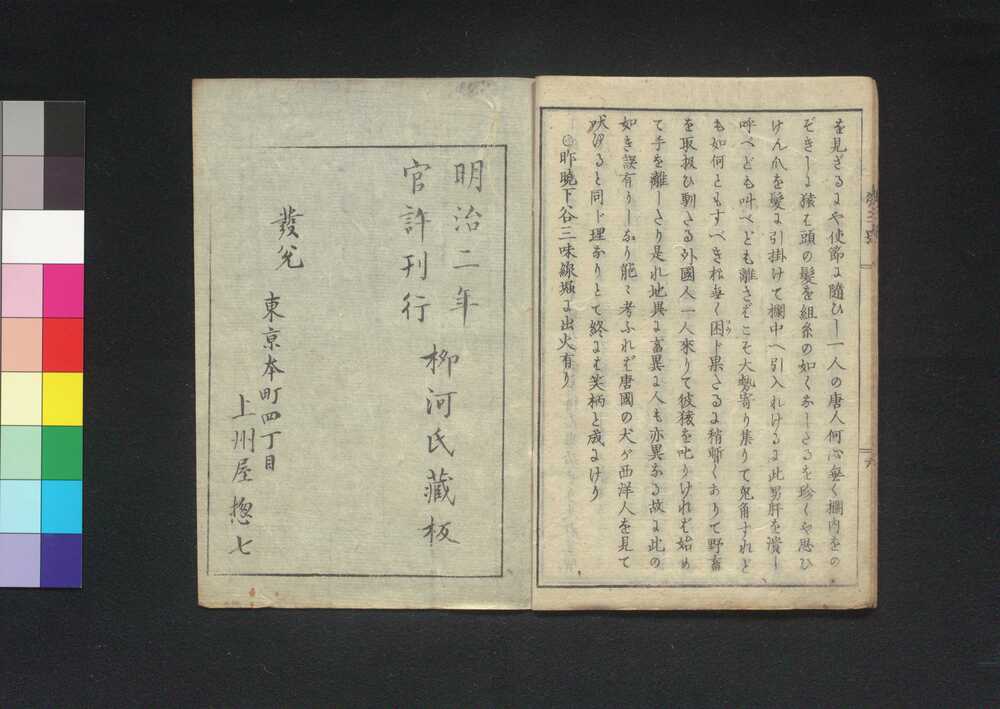 を見ざるにや使節に隨ひし一人の唐人何心無く欄内をの
ぞきしに猿は頭の髮を組糸の如くなしたるを珍しくや思ひ
けん爪を髮に引掛けて欄中へ引入れけるに此男肝を潰し
呼べども叫べども離さばこそ大勢寄り集りて兎角すれど
も如何ともすべき様無く困じ果たるに稍暫くありて野畜
を取扱ひ馴たる外國人一人來りて彼猿を叱りければ始め
て手を離したり是れ地異に畜異に人も亦異なる故に此の
如き誤有りしなり能々考ふれば唐國の犬が西洋人を見て
吠ゆると同じ理なりとて終には笑柄と成にけり
昨曉下谷三味線堀に出火有り
六
明治二年
官許刊行
柳河氏藏板
發兌
東京本町四丁目
上州屋惣七